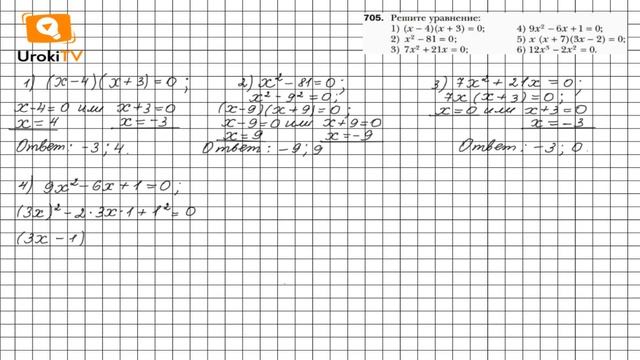 UrokiTV
705. Решите уравнение:
1) (x − 4)(x + 3) = 0;
2) x² − 81 = 0;
3) 7x² + 21x = 0;
4) 9x² − 6x + 1 = 0;
5) x (x + 7)(3x − 2) = 0;
6) 12x³ − 2x² = 0.
1) (x−4)(x+3)=0;
x−4=0 или x+3=0
x=4 x=−3
Ответ: −3; 4.
2) x²−81=0;
x²−9²=0;
(x−9)(x+9)=0;
x−9=0 или x+9=0
x=9 x=−9
Ответ: −9; 9
3) 7x²+21x=0;
7x(x+3)=0;
x=0 или x+3=0
x=−3
Ответ: −3; 0.
4) 9x²−6x+1=0;
(3x)²−2·3x·1+1²=0
(3x−1)